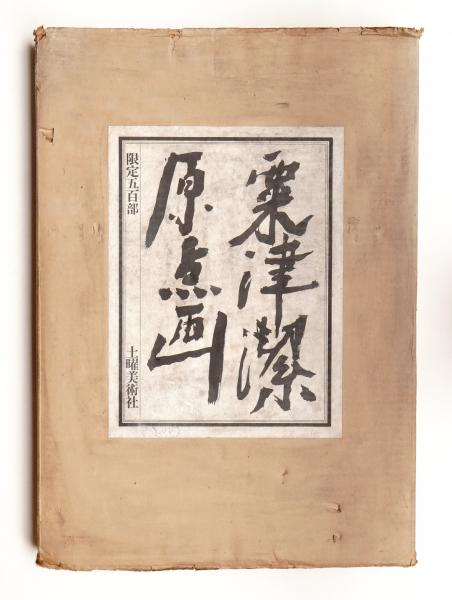 粟津潔
原点画
限定五百部
土曜美術社